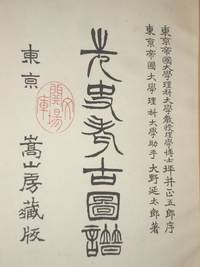 東京帝國大學理科大學敎授理學博士坪井正五郎序
東京帝國大學理科大學助手大野延太郎著
先史考古圖譜
東京 嵩山房藏版